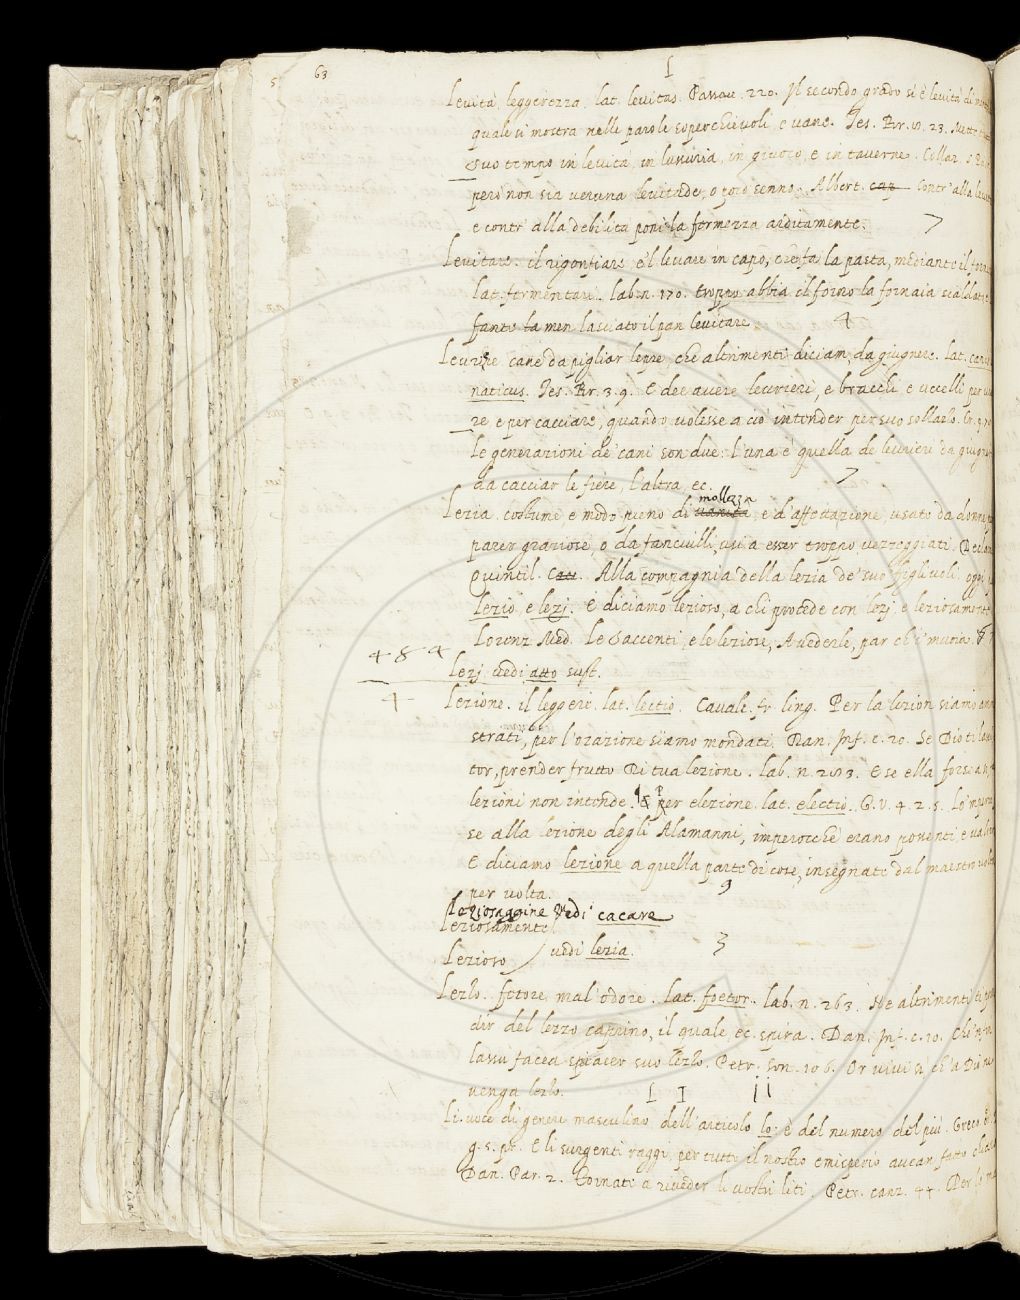 63
L
Levità, leggerezza. lat. levitas. Passau. 220. Il secondo grado si è levità di
quale si mostra nelle parole soperchievoli, e vane. Tes. Br. 23.
suo tempo in levità, in lussuria, in giuoco, e in taverne. Collaz.
però non sia veruna levitade, o poco senno. Albert. cap. Contr' alla
e contr' alla debilità poni la fermezza arditamente.
Levitare. il rigonfiare, e'l levare in capo, che fa la pasta, mediante il
lat. fermentari. lab. n. 170. troppo abbia il forno la fornaia scaldato
fante la men lasciato il pan levitare
4
cane da pigliar lepre, che altrimenti diciam da giugnere. lat.
naticus. Tes. Br. 3. 9. E dee avere levrieri, e bracchi, e uccelli per
re, e per cacciare, quando volesse a ciò intender per suo sollazo.
le generazioni de' cani son due. l'una è quella de levrieri da
da cacciar le fiere, l'altra, ec.
mollezza
Lezia. costume e modo pieno di e d'affettazione, usato da donne
parer graziose, o da fanciulli, usi a esser troppo vezzeggiati.
Quintil. Alla compagnia della lezia de' suo figliuoli. oggi
lezio, e lezj. E diciamo lezioso, a chi procede con lezj e leziosamente
Lorenz. Med. Le saccenti, e le leziose, A vederle, par ch' i' muoia.
484
Lezj vedi atto sust.
Lezione. il leggere. lat. lectio. Cavalc. fr. ling. Per la lezion siamo
strati, per l'orazione siamo mondati. Dan. Inf. c. 20. Se Dio ti
tor, prender frutto Di tua lezione. lab. n. 253. E se ella forse
lezioni non intende. per elezione. lat. electio. G. V. 4. 2. 5.
se alla lezione degli Alamanni, imperocchè erano possenti, e
E diciamo lezione a quella parte di cose, insegnate dal maestro
per volta.
9
Leziosaggine Vedi cacare
Leziosamente
Lezioso vedi lezia.
3
Lezzo. fetore, mal odore. lat. foetor. lab. n. 263. Nè altrimenti
dir del lezzo caprino, il quale, ec. spira. Dan. Inf. c. 10.
lassù facea spiacer suo lezzo. Petr. Son. 106. Or vivi sì ch' a Dio
venga lezzo.
L I
Li. voce di genere masculino dell' articolo lo: è del numero del più.
g. 5. pr. E li surgenti raggi per tutto il nostro emisperio avean fatto
Dan. Par. 2. Tornate a riveder li vostri liti. Petr. canz. 44. Per